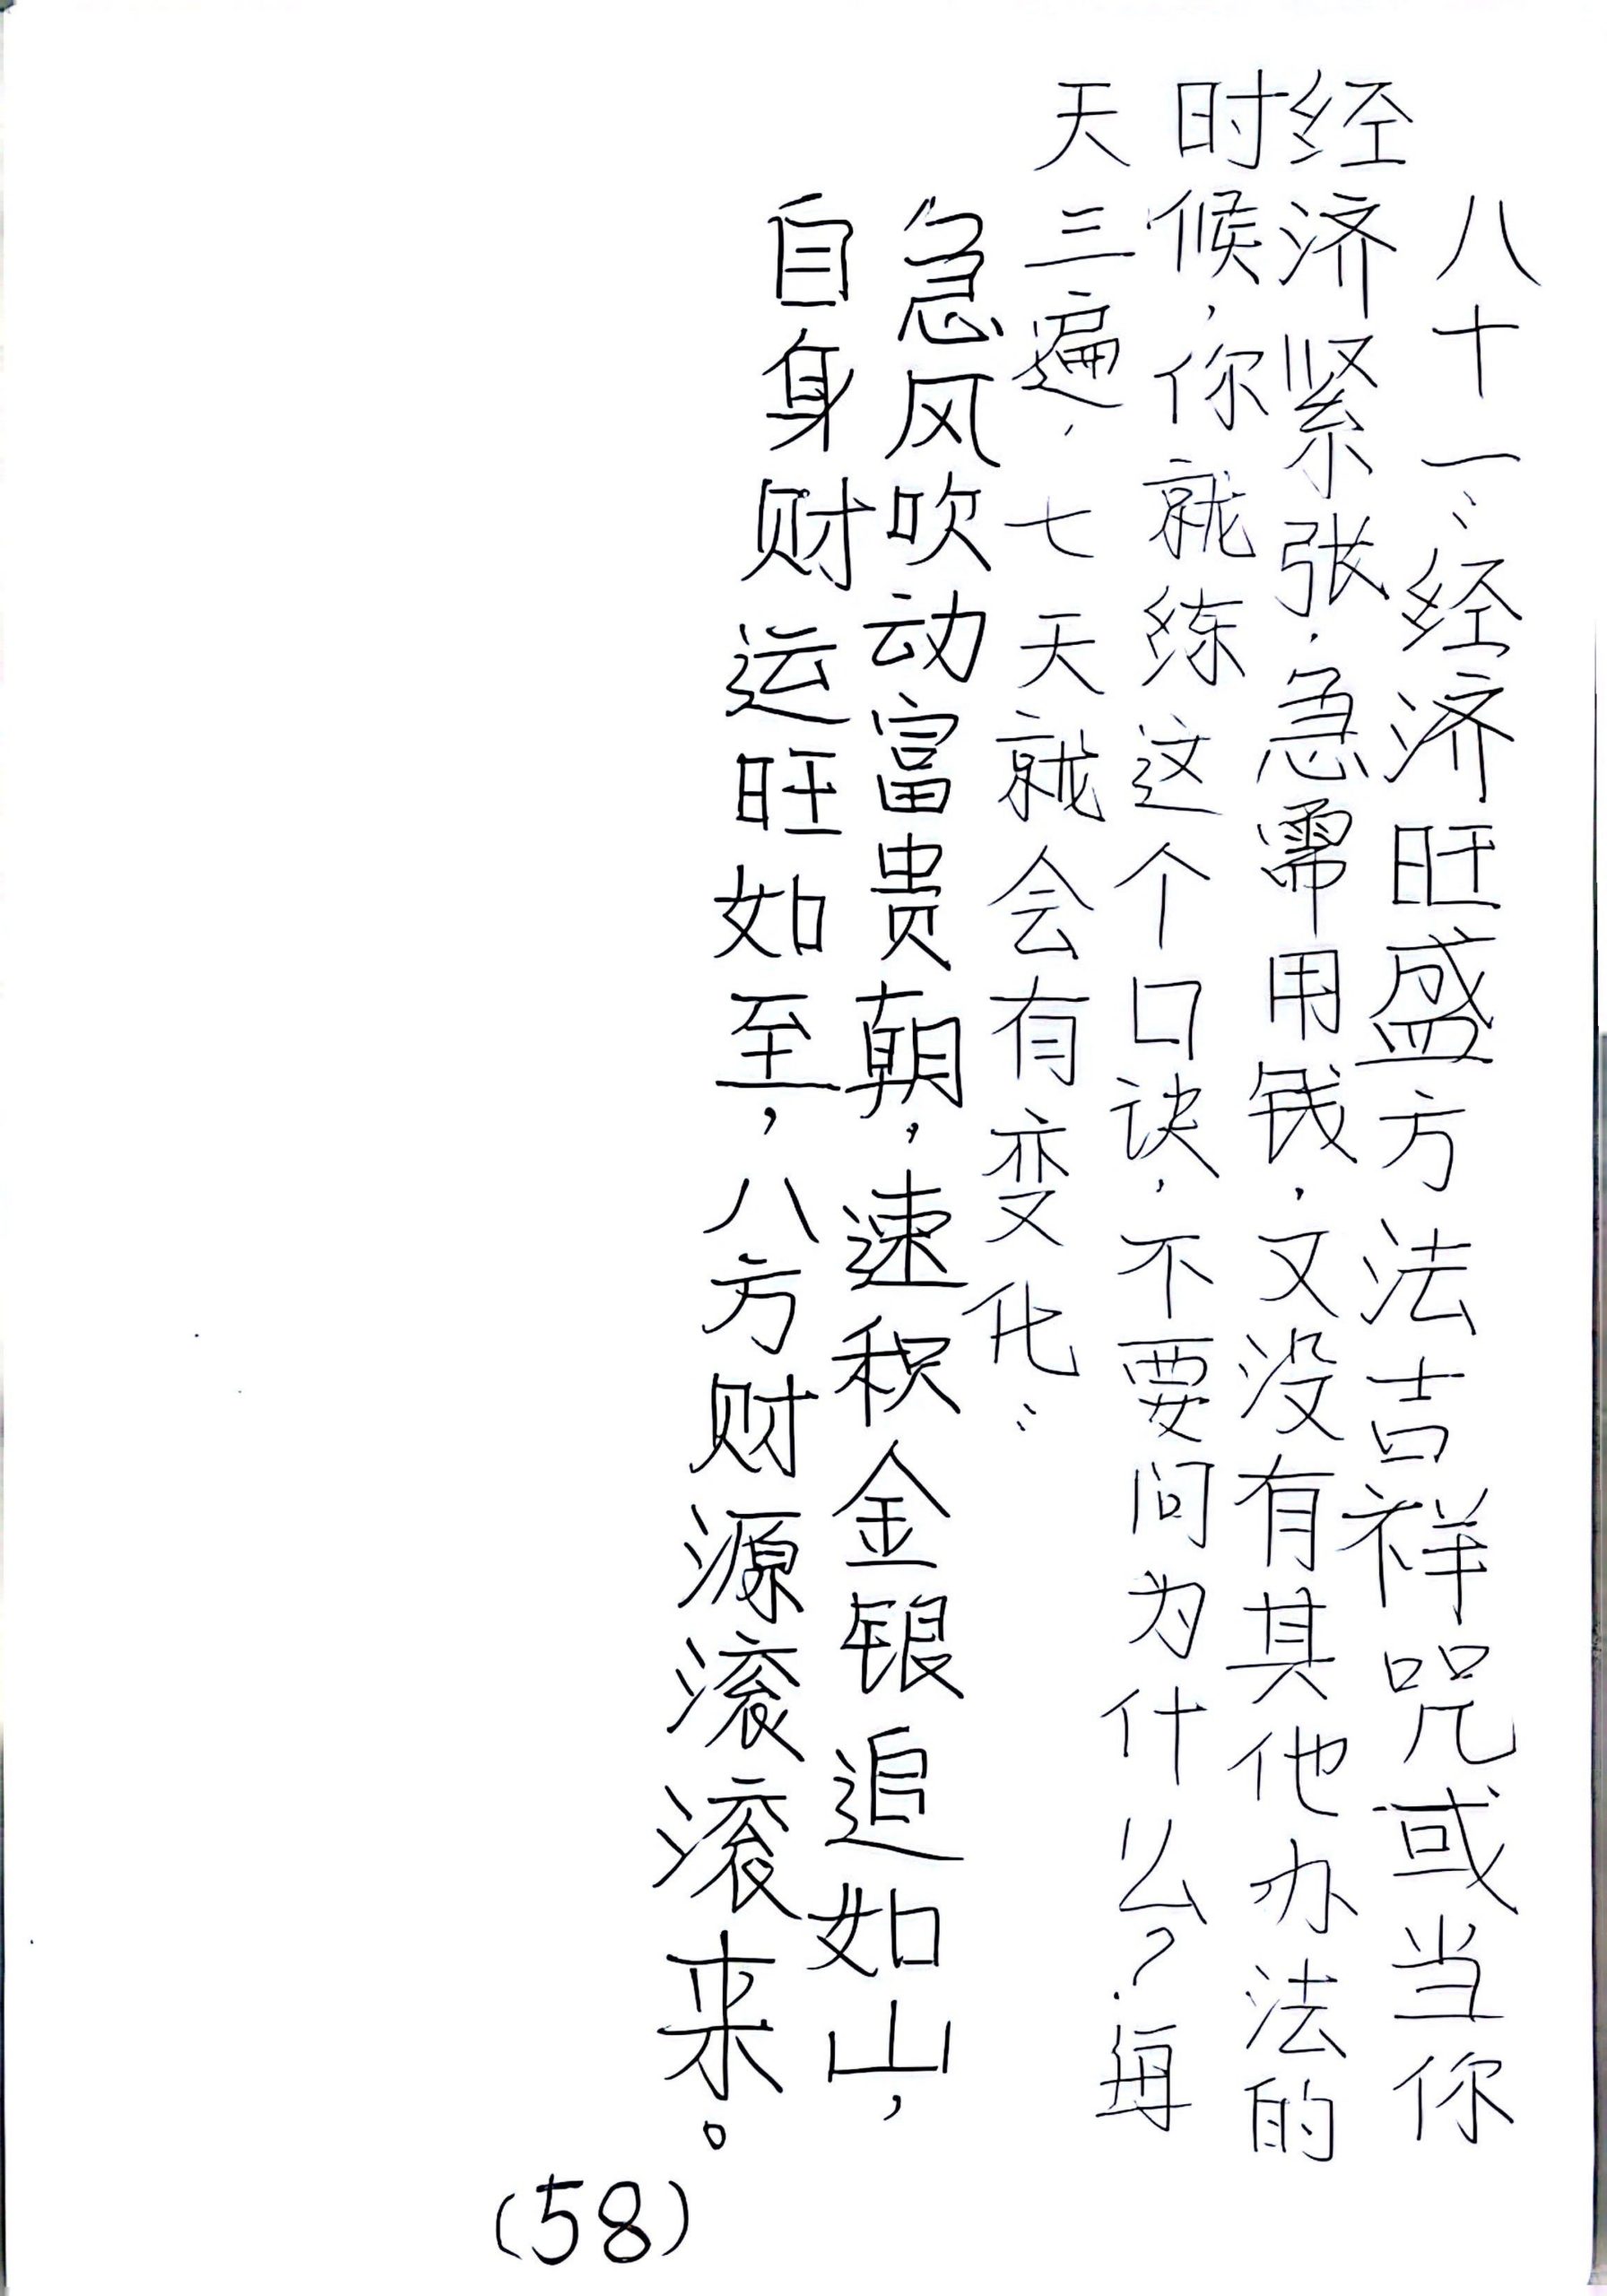 八十一、经济旺盛方法吉祥咒或当你
经济紧张,急需用钱,又没有其他办法的
时候,你就练这个口诀,不要问为什么?每
天三遍,七天就会有变化:
急风吹动富贵朝,速积金银追如山,
自身财运旺如至,八方财源滚滚来。
(58)